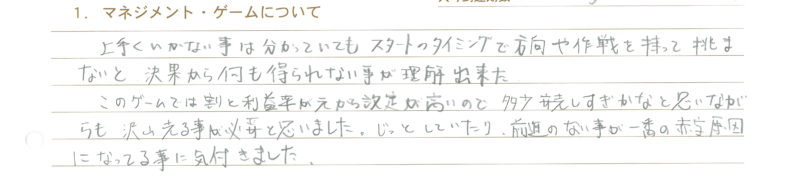 1. マネジメント・ゲームについて
上手くいかない事は分かっていても スタートのタイミングで方向や作戦を持って挑ま
ないと 決果から何も得られない事が理解出来た
このゲームでは割と利益率が元から設定が高いのと 多少 しすぎかなと思いなが
らも 沢山売る事が必要と思いました。じっとしていたり、前進のない事が一番の赤字原因
になってる事に気付きました。